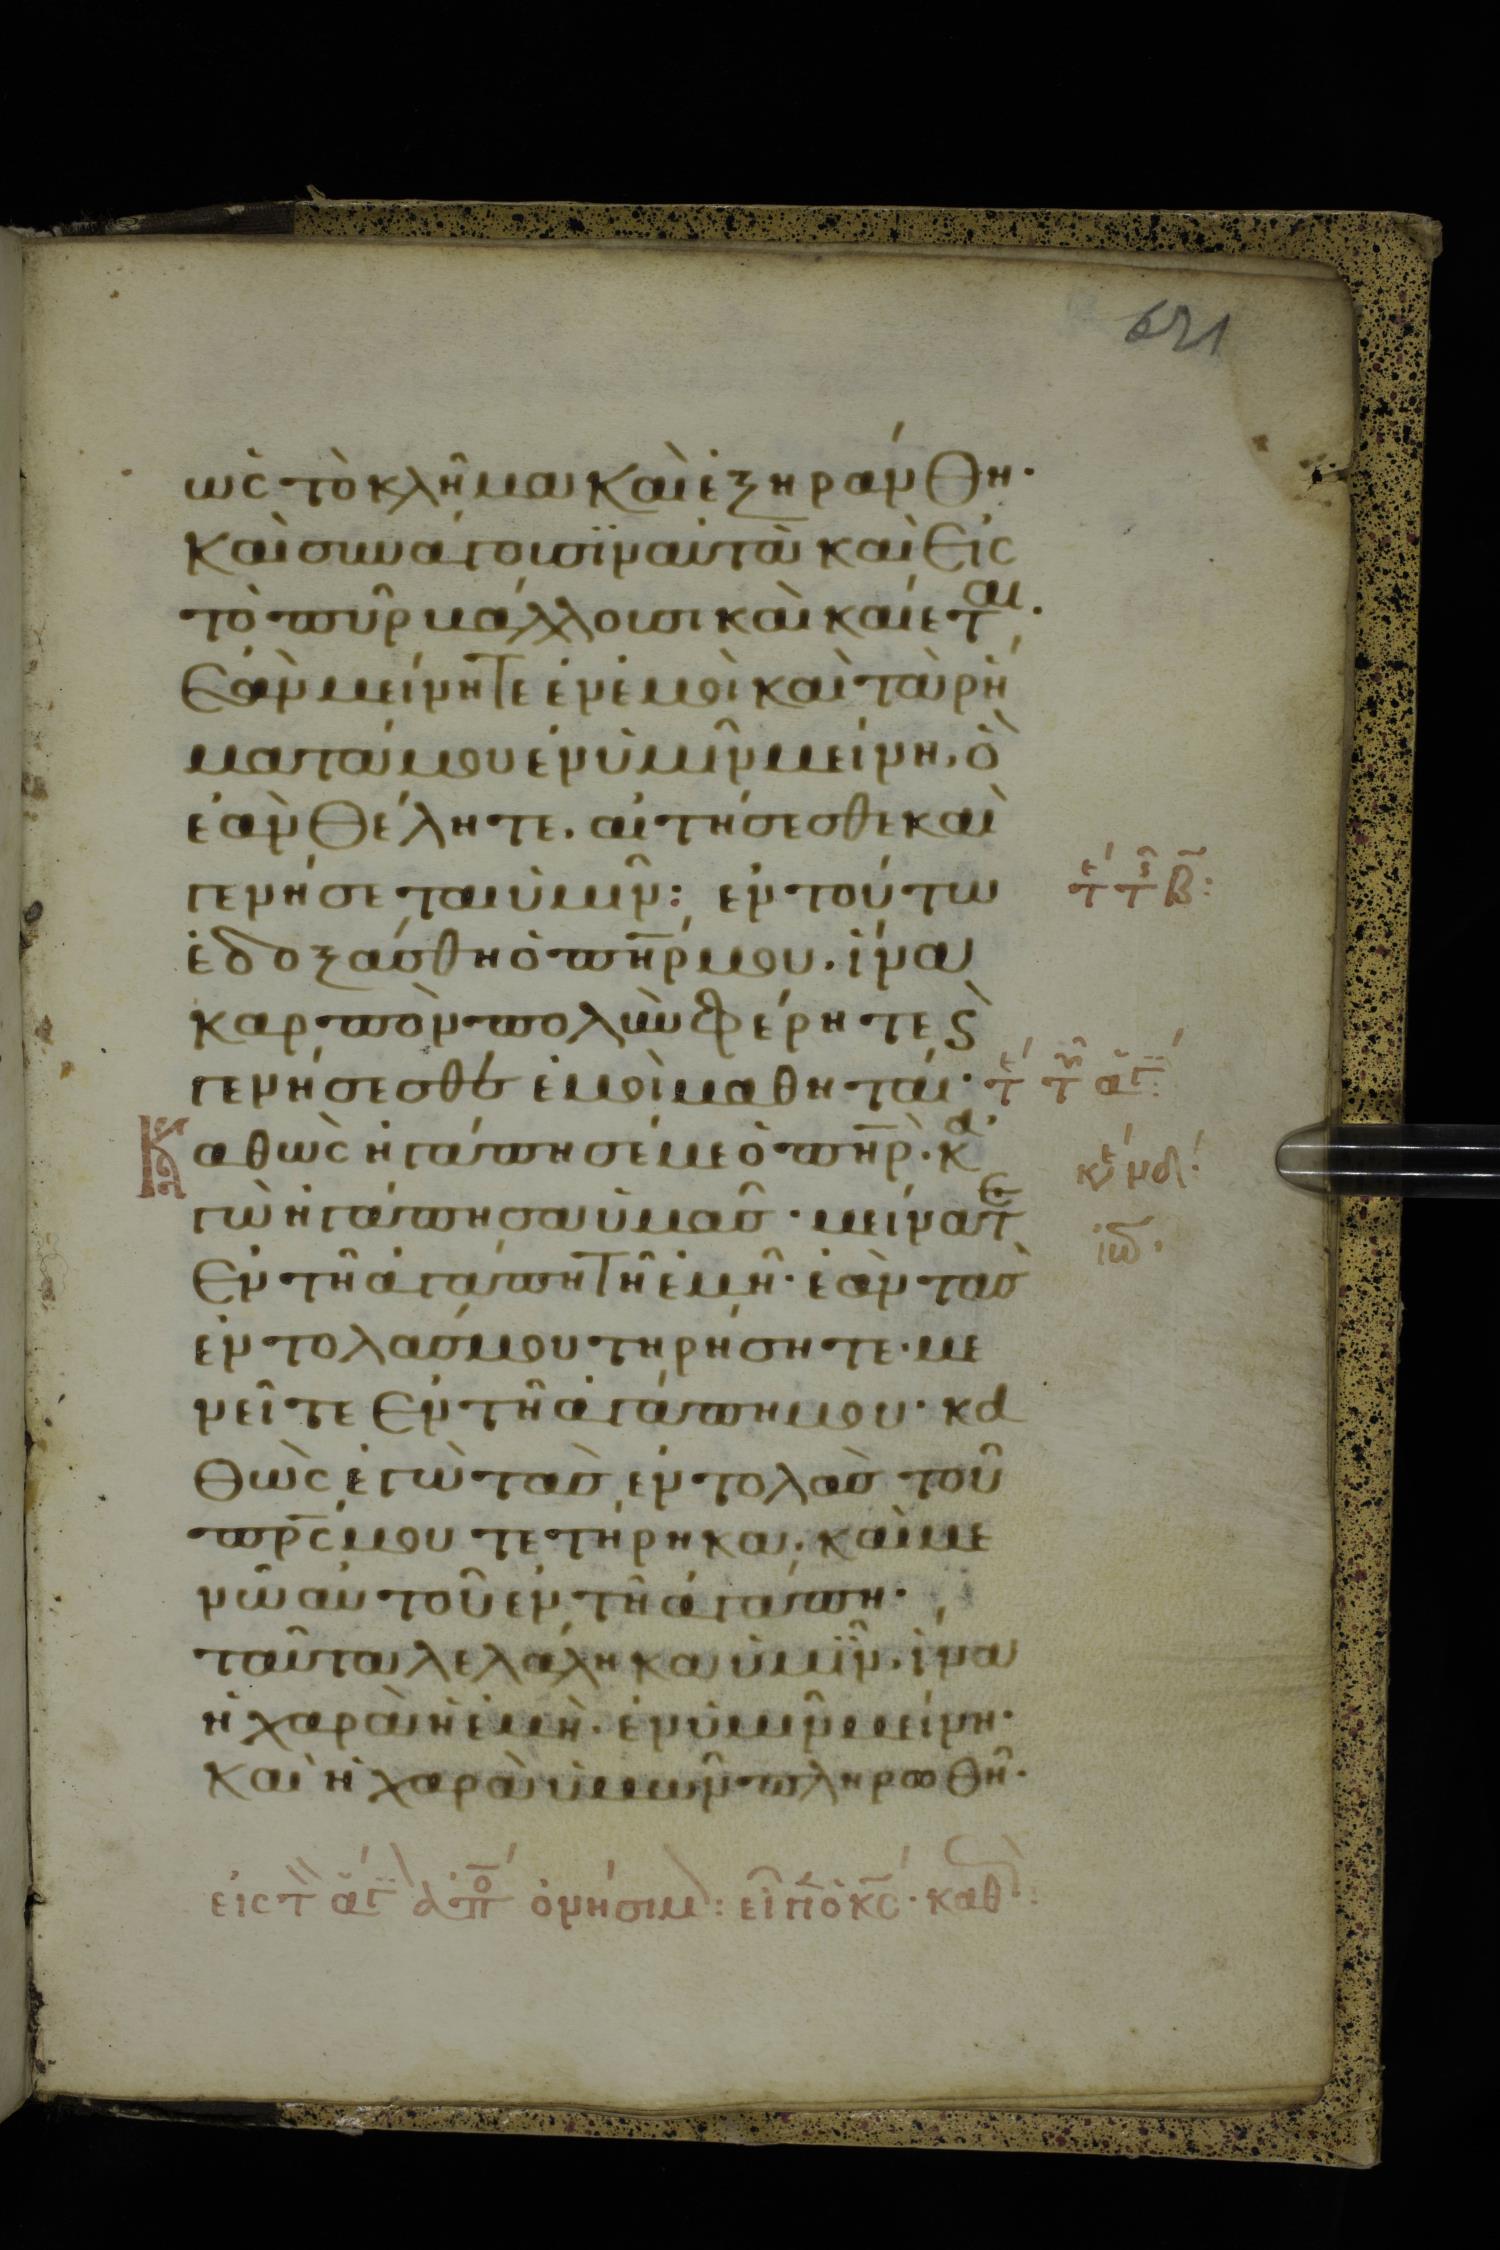 621
ὡς τὸ κλῆμα καὶ ἐξηράνθη·
καὶ συνάγουσϊν αὐτὰ καὶ εἰς
τὸ πῦρ βάλλουσι καὶ καίεται·
ἐὰν μείνητε ἐν ἐμοὶ καὶ τὰ ῥή
ματά μου ἐν ὑμῖν μείνη, ὃ
ἐὰν θέλητε. αἰτήσεσθε καὶ
γενήσεται ὑμῖν: ἐν τούτω
ἐδοξάσθη ὁ πηρ μου. ἵνα
καρπὸν πολὺν φέρητε ϛ
γενήσεσθε ἐμοὶ μαθηταί·
Καθὼς ἠγάπησέ με ὁ πηρ· κα
γὼ ἠγάπησα ὑμᾶς· μείνατε
ἐν τῆ ἀγάπη τῆ ἐμῆ· ἐὰν τὰς
ἐντολάς μου τηρήσητε· με
νεῖτε ἐν τῆ ἀγάπη μου· κα
θὼς ἐγὼ τὰς ἐντολὰς τοῦ
πρς μου τετήρηκα· καὶ με
νῶ αὐτοῦ ἐν τῆ ἀγάπη·
ταῦτα λελάληκα ὑμῖν. ἵνα
ἡ χαρὰ ἡ ἐμὴ. ἐν ὑμῖν μείνη·
καὶ ἡ χαρὰ ὑμῶν πληρωθῆ·
εἰς τ ἁγ ἀπο ὀνήσιμ: εἶπ ὁ κς· καθ: